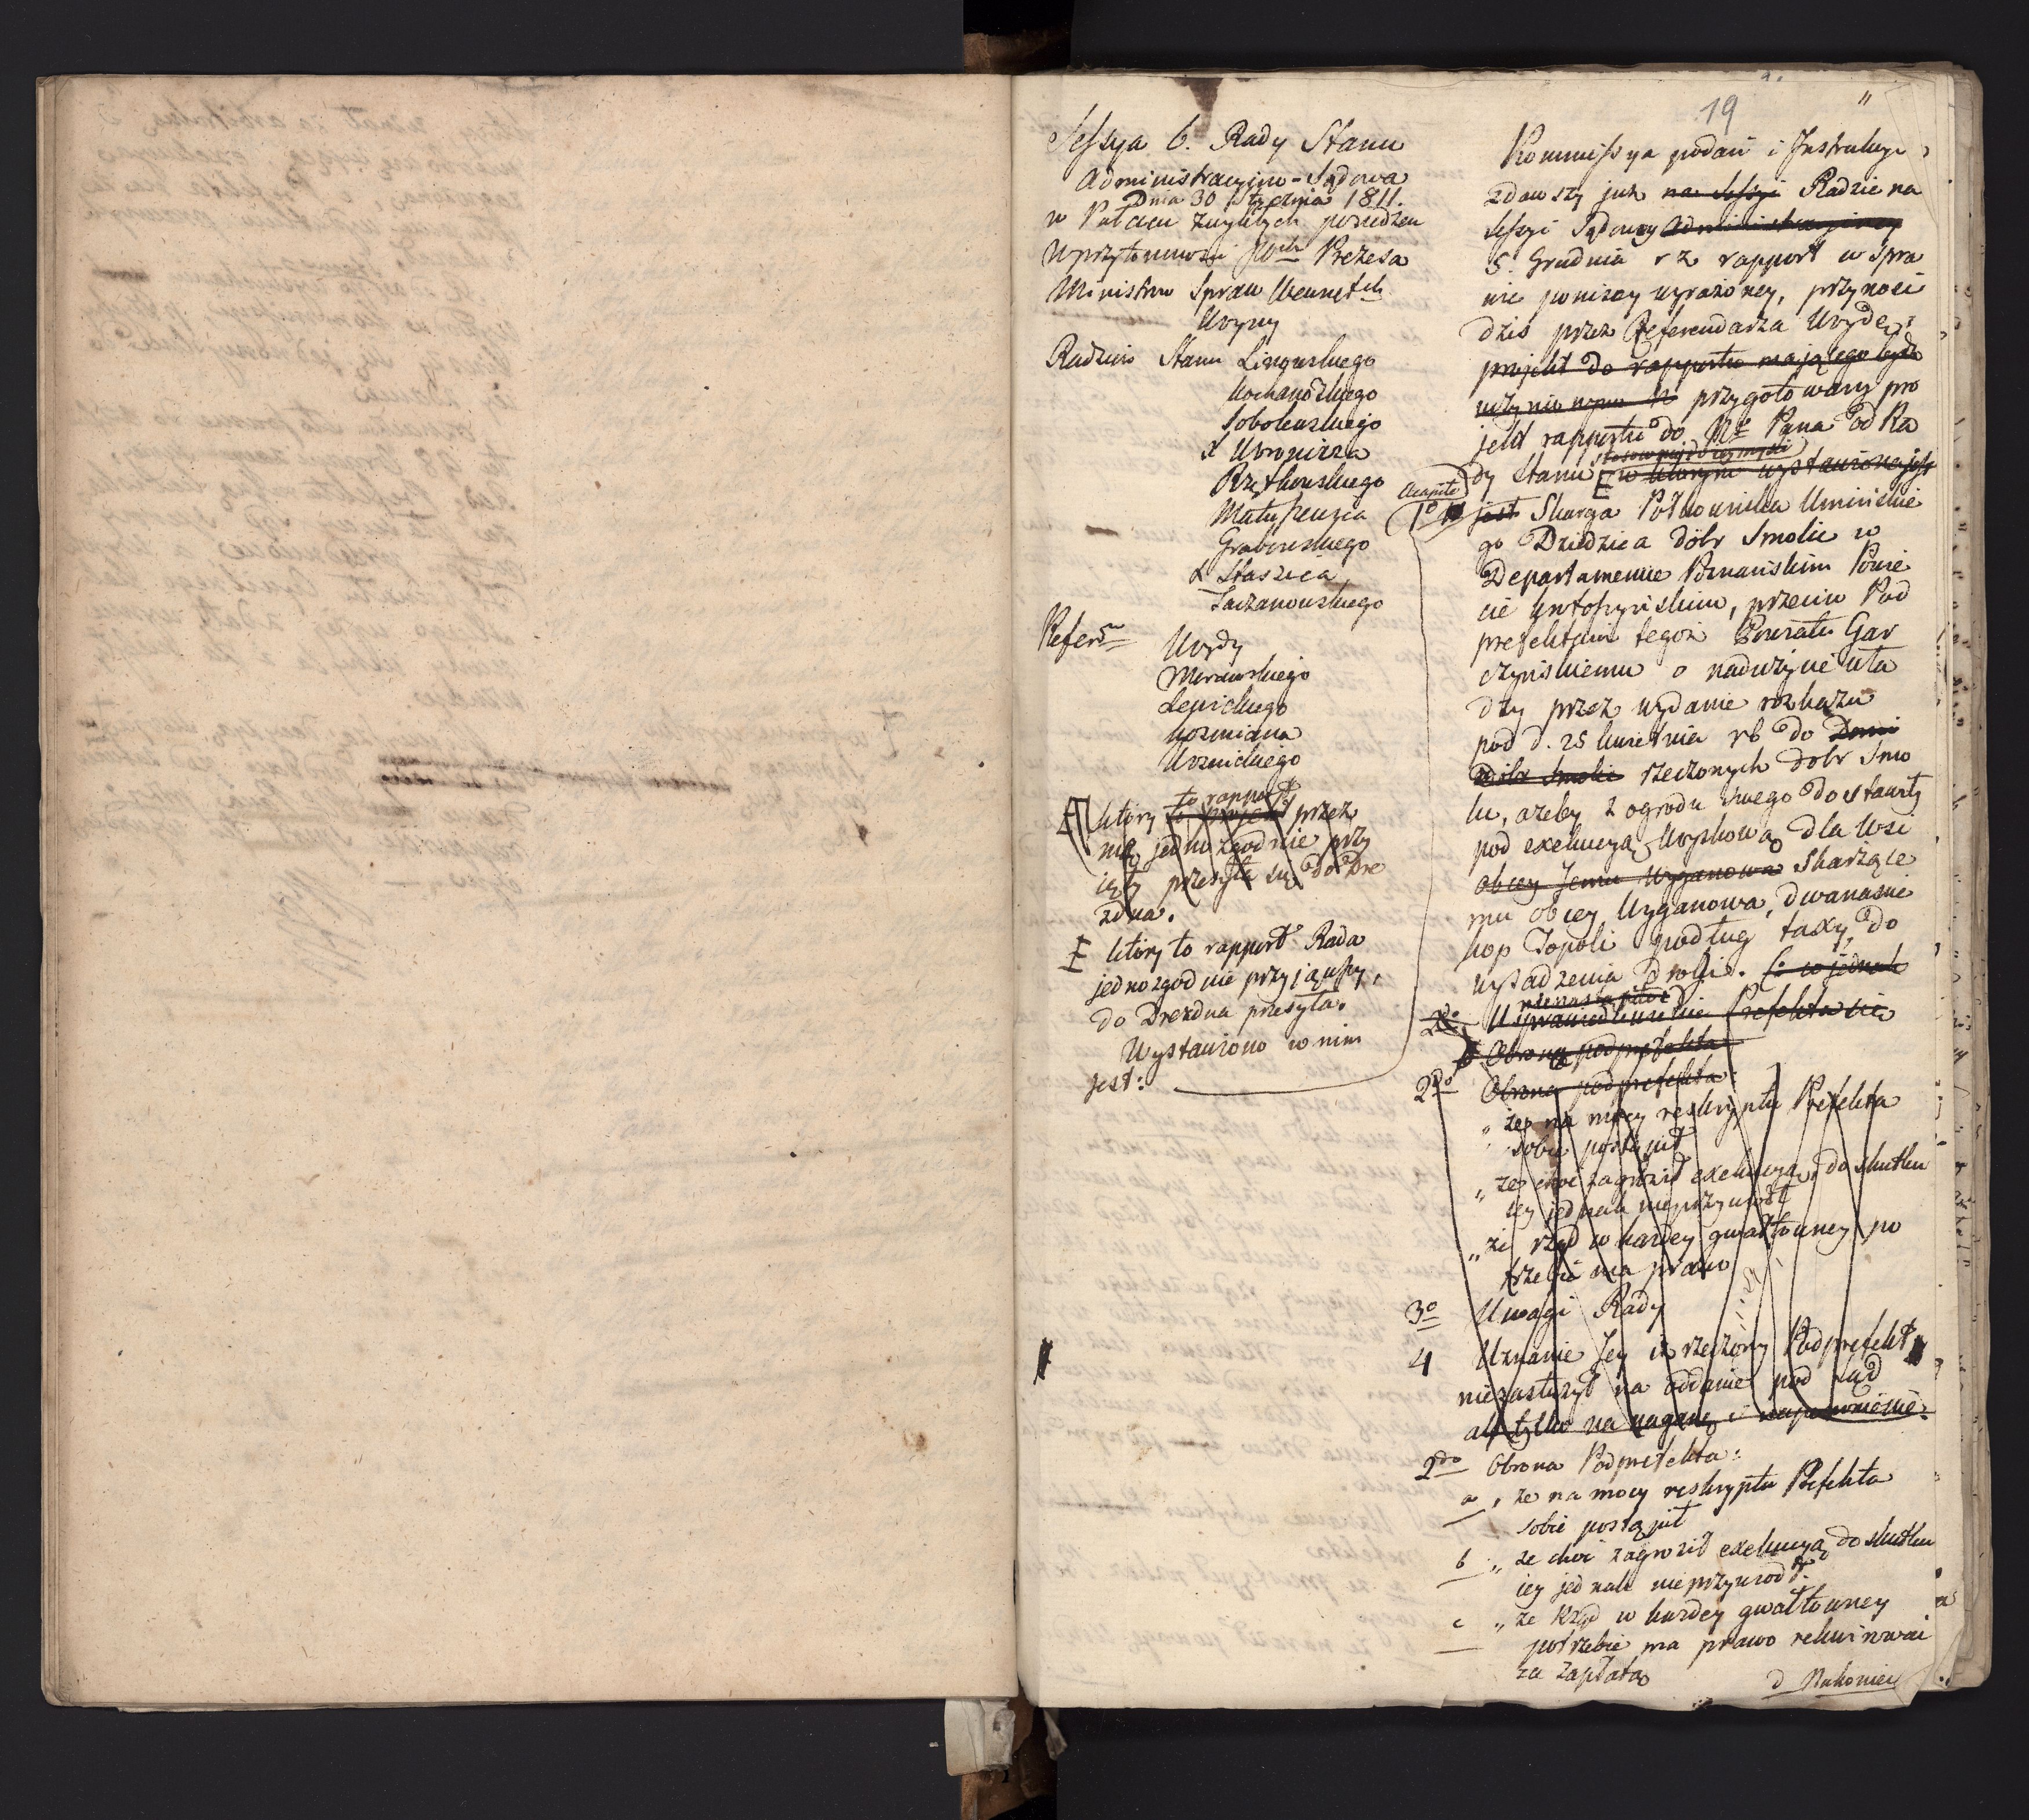 19
11
Sessya 6. Rady Stanu
Administracyino-Sądowa
Dnia 30 Stycznia 1811.
w Pałacu zwykłych posiedzeń
w przytomności JWch Prezesa
Ministrów Spraw Wewnętch
Woyny
Radzców Stanu Linowskiego
Kochanowskiego
Sobolewskiego
X Woronicza
Rzętkowskiego
Matuszewica
Grabowskiego
X Staszica
Taczanowskiego
Referrzy Woydy
Morawskiego
Lewickiego
Koźmiana
Woznickiego
to rapport
który to projekt przez
nią jednozgodnie przy
ięty przesyła się do Dre
zdna.
E który to rapport Rada
jednozgodnie przyjąwszy,
do Drezdna przesyła.
Wystawiono w nim
jest:
Kommissya podań i Instrukcyi
zdawszy już na Sessyi Radzie na
sessyi Sądowey administracyiney
5. Grudnia r z rapport w spra
wie poniżey wyrażoney, przynosi
dziś przez Referendarza Woydę
projekt do rapportu mającego bydź
uczynionym N przygotowany pro
jekt rapportu do N. Pana od Ra
dy Stanu E w którym wystawiona jest
acapite
1o jest Skarga Półkownika Umińskie
go Dziedzica dóbr Smolic w
Departamencie Poznańskim Powie
cie Krotoszyńskim, przeciw Pod
prefektowi tegoż Powiatu Gar
czyńskiemu o nadużycie wła
dzy przez wydanie rozkazu
pod d. 25 kwietnia rb do Domi
Dóbr Smolic rzeczonych dóbr Smo
lic, ażeby z ogrodu swego dostawiły
pod exekucyą Woyskową dla Wsi
obcey Jemu Wyganowa Skarżące
mu obcey Wyganowa, dwanaście
kop Topoli podług taxy do
wysadzenia drogi. Co w jednak
2o Usprawiedliwienie Prefekta się
Obrona podprefekta
2do Obrona podprefekta
„ że na mocy reskryptu Prefekta
sobie postąpił
„ że choć zagroził exekucyą, do skutku
iey jednak nieprzywiódł
„ że rząd w każdey gwałtowney po
trzebie ma prawo
3o Uwagi Rady
4 Uznanie Jey iż rzeczony Podprefekt
niezasłużył na oddanie pod Sąd
ale tylko na naganę i napomnienie.
2do Obrona Podprefekta:
a „ że na mocy reskryptu Prefekta
sobie postąpił
b „ że choć zagroził exekucyą do skutku
iey jednak nieprzywiódł.
c „ że Rząd w każdey gwałtowney
potrzebie ma prawo rekwirować
za zapłatą
d Nakoniec